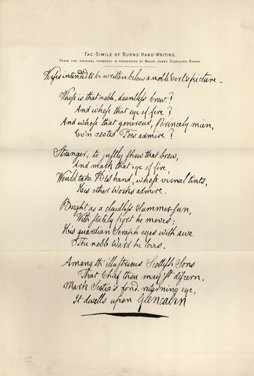 FAC-SIMILE OF BURNS' HAND-WRITING.
FROM THE ORIGINAL FORMERLY IN POSSESSION OF MAJOR JAMES GLENCAIRN BURNS.
Verses intended to be written below a noble Earl's picture.
Whose is that noble, dauntless brow?
And whose that eye of fire?
And whose that generous, Princely mien,
Ev'n rooted Foes admire?
Stranger, to justly shew that brow,
And mark that eye of fire,
Would take His hand, whose vernal tints,
His other Works admire.
Bright as a cloudless Summer-sun,
With stately port he moves;
His guardian Seraph eyes with awe
The noble Ward he loves.
Among the illustrious Scottish Sons
That Chief thou may'st discern,
Mark Scotia's fond returning eye,
It dwells upon Glencairn